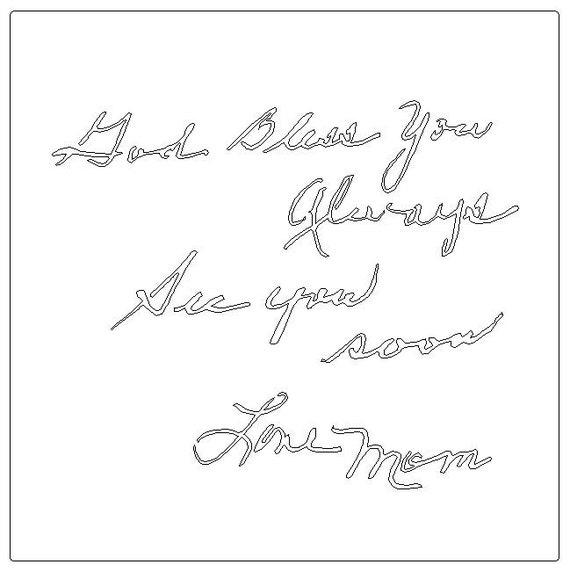 God Bless You
Always
See you
soon
Love Mom